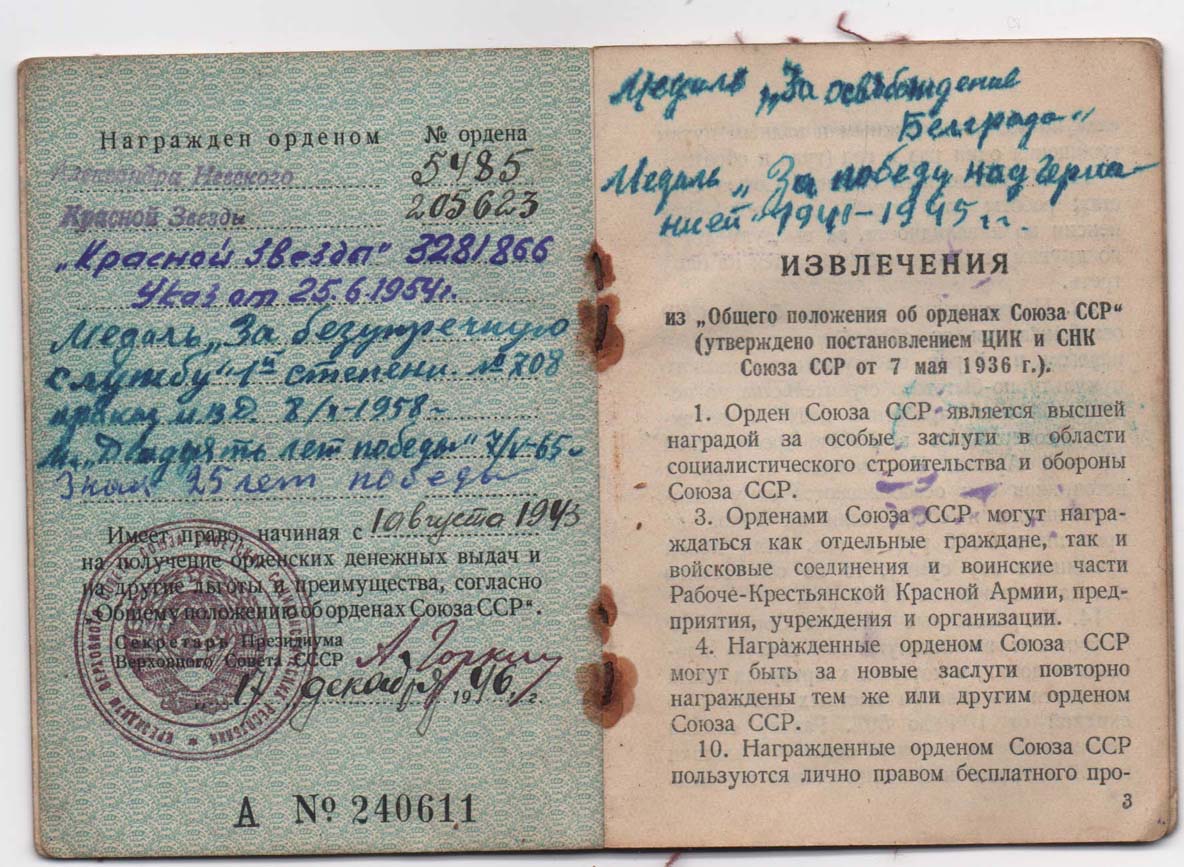 Награжден орденом № ордена
Александра Невского 5485
Красной Звезды 205623
"Красной Звезды" 3281866
Указ от 25.6.1954г.
Медаль „За безупречную
службу" 1й степени. №708
приказ М.В.Д. 8/II-1958г.
м. „Двадцать лет победы" 7/V-65г.
Знак 25 лет победы
Имеет право, начиная с 1 августа 1943
на получение орденских денежных выдач и
на другие льготы и преимущества, согласно
„Общему положению об орденах Союза ССР".
Секретарь Президиума
Верховного Совета СССР А. Горкин
17 декабря 1946 г.
А № 240611
Медаль „За освобождение
Белграда"
Медаль „За победу над Герма-
нией" 1941-1945 г г.
ИЗВЛЕЧЕНИЯ
из „Общего положения об орденах Союза ССР"
(утверждено постановлением ЦИК и СНК
Союза ССР от 7 мая 1936 г.).
1. Орден Союза ССР является высшей
наградой за особые заслуги в области
социалистического строительства и обороны
Союза ССР.
3. Орденами Союза ССР могут награ-
ждаться как отдельные граждане, так и
войсковые соединения и воинские части
Рабоче-Крестьянской Красной Армии, пред-
приятия, учреждения и организации.
4. Награжденные орденом Союза ССР
могут быть за новые заслуги повторно
награждены тем же или другим орденом
Союза ССР.
10. Награжденные орденом Союза ССР
пользуются лично правом бесплатного про-
3